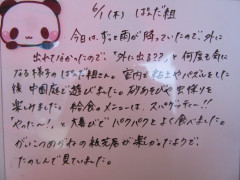 6/1(木) ぱんだ組
今日は、ずっと雨が降っていたので、外に
出れていなかったので、「外に出る??」と何度も気に
なる様子のぱんだ組さん。室内で粘土やパズルをした
後、中国庭で遊びました。砂あそびや虫探りを
楽しみました。給食のメニューは、スパゲッティー!!
「やったー!」と大喜びでパクパクとよく食べました。
がいこつのおばねの紙芝居が楽かったようで、
たのしんで見ていました。